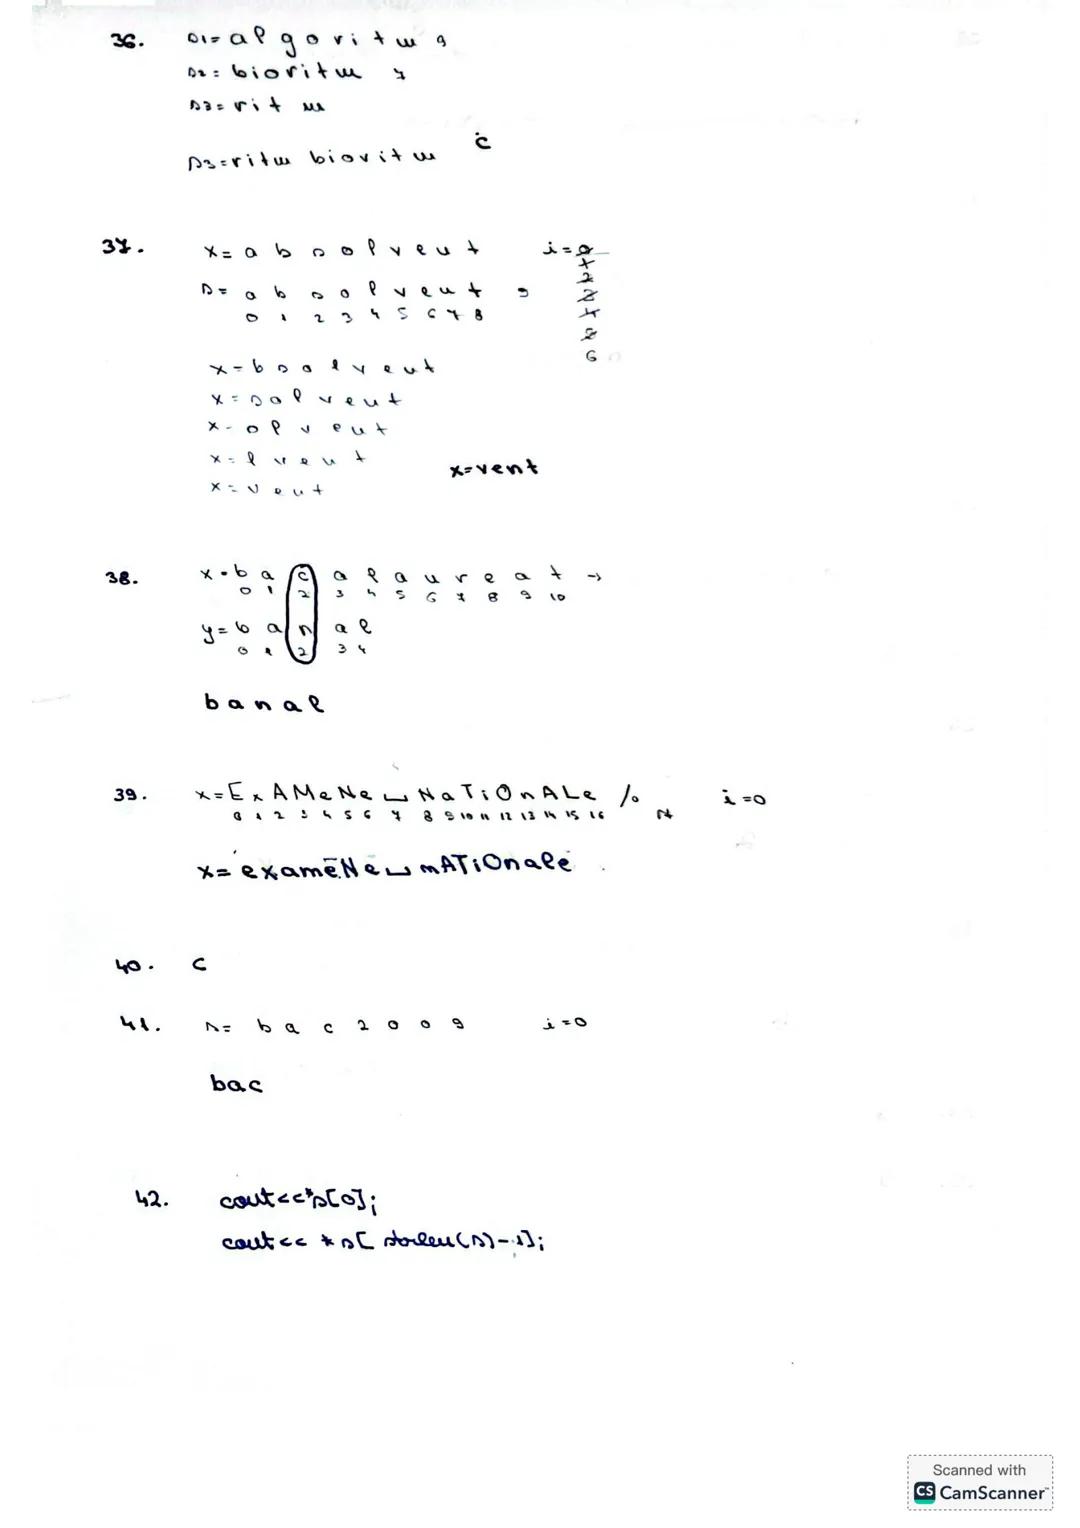 36. s1= algoritm 9
s2= bioritm 7
s3= ritm
s3=ritm bioritm c
37. x= absolvent i=0
1
2
3
4
5
6
s= absolvent 9
0 1 2 3 4 5 6 7 8
x=bsolvent
x=solvent
x=olvent
x=lvent
x=vent
x=vent
38. x=bacalaureat →
0 1 2 3 4 5 6 7 8 9 10
y=banal
0 1 2 3 4
banal
39. x=ExAMeNe ␣ NaTiOnALe i=0
0 1 2 3 4 5 6 7 8 9 10 11 12 13 14 15 16
x= exameNe␣mATiOnale
40. c
41. s= bac2009 i=0
bac
42. cout<<*s[0];
cout<< *s[strlen(s)-1];
Scanned with
CS CamScanner